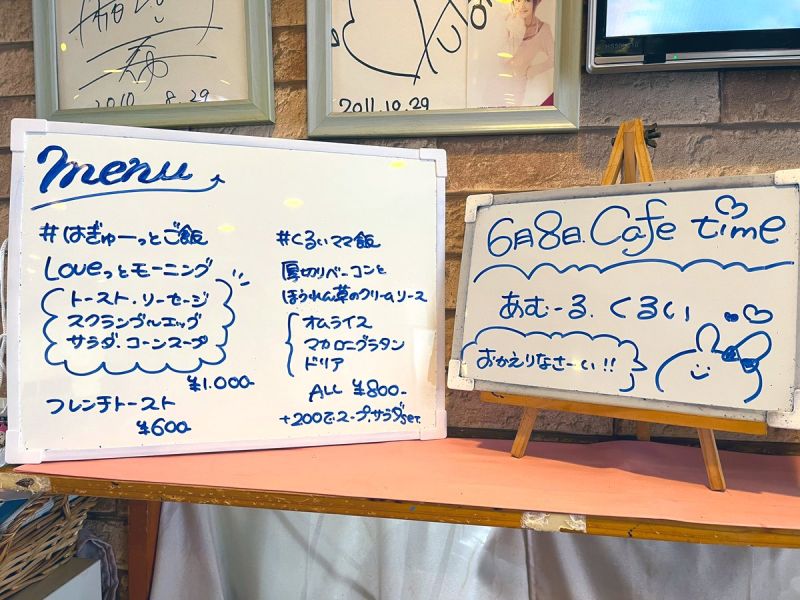 2010 8.29
2011.10.29
menu
#はぎゅーっとご飯
Loveっとモーニング
トースト・ソーセージ
スクランブルエッグ
サラダ・コーンスープ
¥1.000-
フレンチトースト
¥600-
#くるぃママ飯
厚切りベーコンと
ほうれん草のクリームソース
オムライス
マカロニグラタン
ドリア
ALL ¥800-
+200でスープ.サラダset.
6月8日. Cafe time
あむーる.くるぃ
おかえりなさーい!!